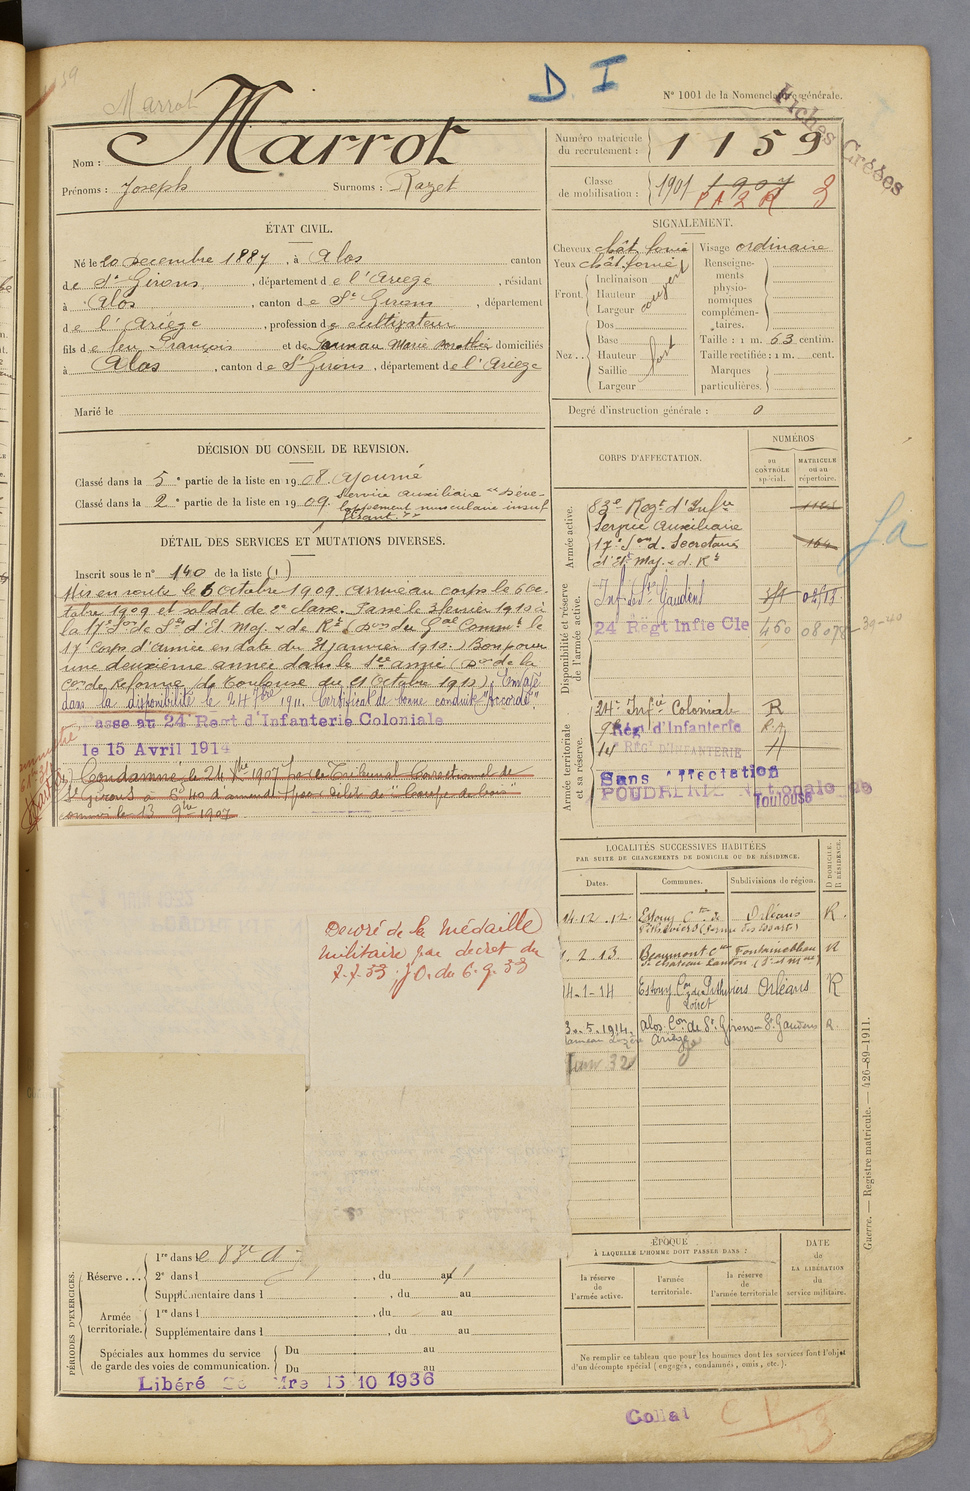 59
Marrot
D I
N° 1001 de la Nomenclature générale.
Fiches Gresés
Nom : Marrot
Prénoms : Joseph Surnoms : Razet
Numéro matricule du recrutement : 1159
Classe de mobilisation : 1901 1907
ÉTAT CIVIL.
Né le 20 Decembre 1887, à Alos canton
de St Girons, département de l'Ariège, résidant
à Alos, canton de St Girons, département
de l'Ariège, profession de cultivateur
fils de feu François et de Marie Dorothée domiciliés
à Alos, canton de St Girons, département de l'Ariège
Marié le
SIGNALEMENT.
Cheveux chât. foncé Visage ordinaire
Yeux chât. foncé
Front. Inclinaison Hauteur Largeur
Nez.. Dos Base Hauteur Saillie Largeur fort
Renseignements physionomiques complémentaires.
Taille : 1 m. 63 centim.
Taille rectifiée : 1 m. cent.
Marques particulières.
Degré d'instruction générale : 0
DÉCISION DU CONSEIL DE REVISION.
Classé dans la 5e partie de la liste en 1908. Ajourné
Classé dans la 2e partie de la liste en 1909. Service auxiliaire "Déve-
loppement musculaire insuf
fisant."
DÉTAIL DES SERVICES ET MUTATIONS DIVERSES.
Inscrit sous le n° 140 de la liste (1)
Mis en route le 6 octobre 1909. Arrivé au corps le 6 oc-
tobre 1909 et soldat de 2e classe. Passé le 3 février 1910 à
la 17e Son de Sres d'Et Maj. & de Rt (Don du Gal Commt le
17 Corps d'Armée en date du 31 janvier 1910.) Bon pour
une deuxième année dans le Sce armé (Don de la
Con de Réforme de Toulouse du 21 Octobre 1910). Envoyé
dans la disponibilité le 24 7bre 1911. Certificat de bonne conduite "Accordé".
Passé au 24 Regt d'Infanterie Coloniale
le 15 Avril 1914
Condamné le 24 Xbre 1907 par le Tribunal Correctionnel de
St Girons à 6f40 d'amende pour délit de "coupe de bois"
commis le 13 9bre 1907
Décoré de la Médaille
Militaire par décret du
7.7.33. J.O. du 6.9.33
CORPS D'AFFECTATION.
NUMÉROS
au CONTRÔLE spécial.
MATRICULE ou au répertoire.
Armée active.
83e Régt d'Infie
Service Auxiliaire
17e Son de Secretaires 164
d'Et Maj. & d. Rt
Disponibilité et réserve de l'armée active.
Inf de St Gaudens
24 Régt Infie Cle 460
Armée territoriale et sa réserve.
24e Infie Coloniale R
Régt d'Infanterie R.A
14 RÉGT D'INFANTERIE A
Sans affectation
POUDRERIE Nationale de
Toulouse
LOCALITÉS SUCCESSIVES HABITÉES
PAR SUITE DE CHANGEMENTS DE DOMICILE OU DE RÉSIDENCE.
Dates. Communes. Subdivisions de région. D DOMICILE. R RÉSIDENCE.
14.12.12. Estouy Con de Pithiviers Orléans R.
.2.13. Beaumont Con Chateau Landon (S et Mne) Fontainebleau R
14-1-14 Estouy Con de Pithiviers Loiret Orléans R
3.5.1914. Alos. Con de St Girons Ariège St Gaudens R.
Juin 32
PÉRIODES D'EXERCICES.
Réserve ... 1re dans le 83e d
2e dans l , du au
Supplémentaire dans l , du au
Armée territoriale. 1re dans l , du au
Supplémentaire dans l , du au
Spéciales aux hommes du service de garde des voies de communication. Du au
Du au
Libéré 15 10 1936
ÉPOQUE
À LAQUELLE L'HOMME DOIT PASSER DANS :
la réserve de l'armée active.
l'armée territoriale.
la réserve de l'armée territoriale
DATE de LA LIBÉRATION du service militaire.
Ne remplir ce tableau que pour les hommes dont les services font l'objet
d'un décompte spécial (engagés, condamnés, omis, etc.).
Guerre. — Registre matricule. — 426-89-1911.
Collat